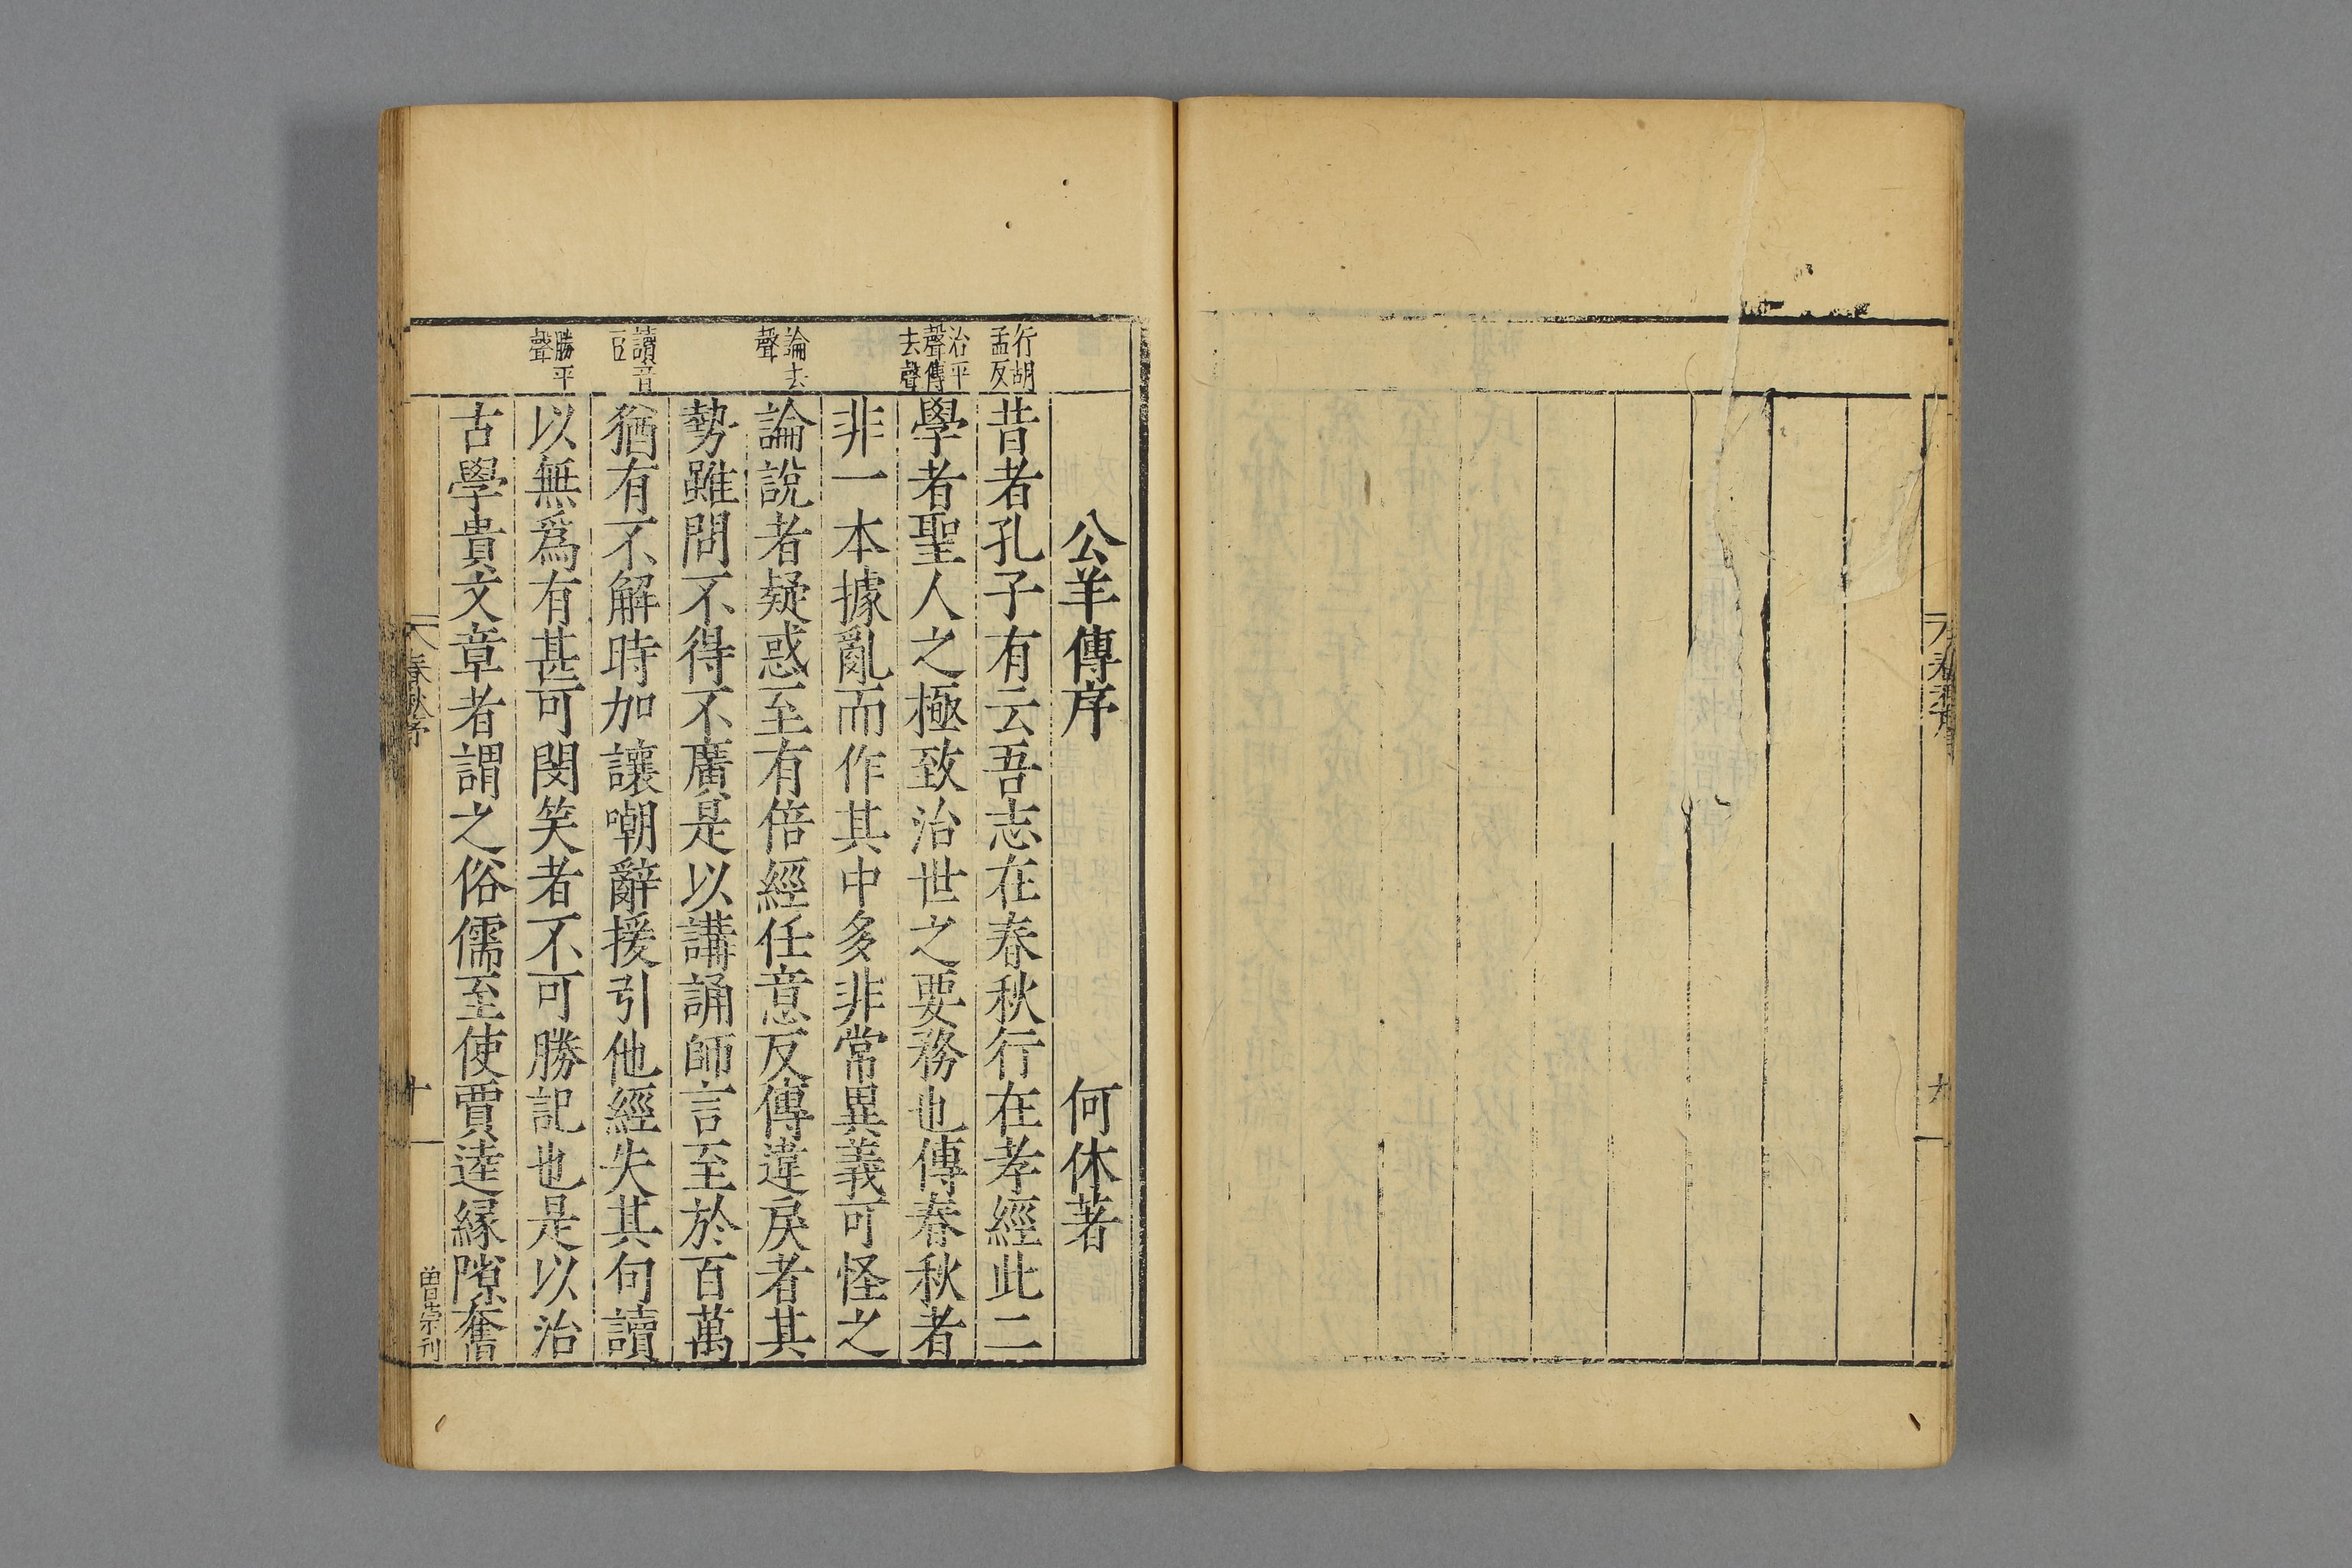 公羊傳序 何休著
行胡
孟反
昔者孔子有云吾志在春秋行在孝經此二
治平
聲傳
去聲
學者聖人之極致治世之要務也傳春秋者
非一本據亂而作其中多非常異義可怪之
論去
聲
論說者疑惑至有倍經任意反傳違戾者其
勢雖問不得不廣是以講誦師言至於百萬
讀音
豆
猶有不解時加讓嘲辭援引他經失其句讀
勝平
聲
以無爲有甚可閔笑者不可勝記也是以治
古學貴文章者謂之俗儒至使賈逵緣隙奮
春秋序
十
曾崇刊